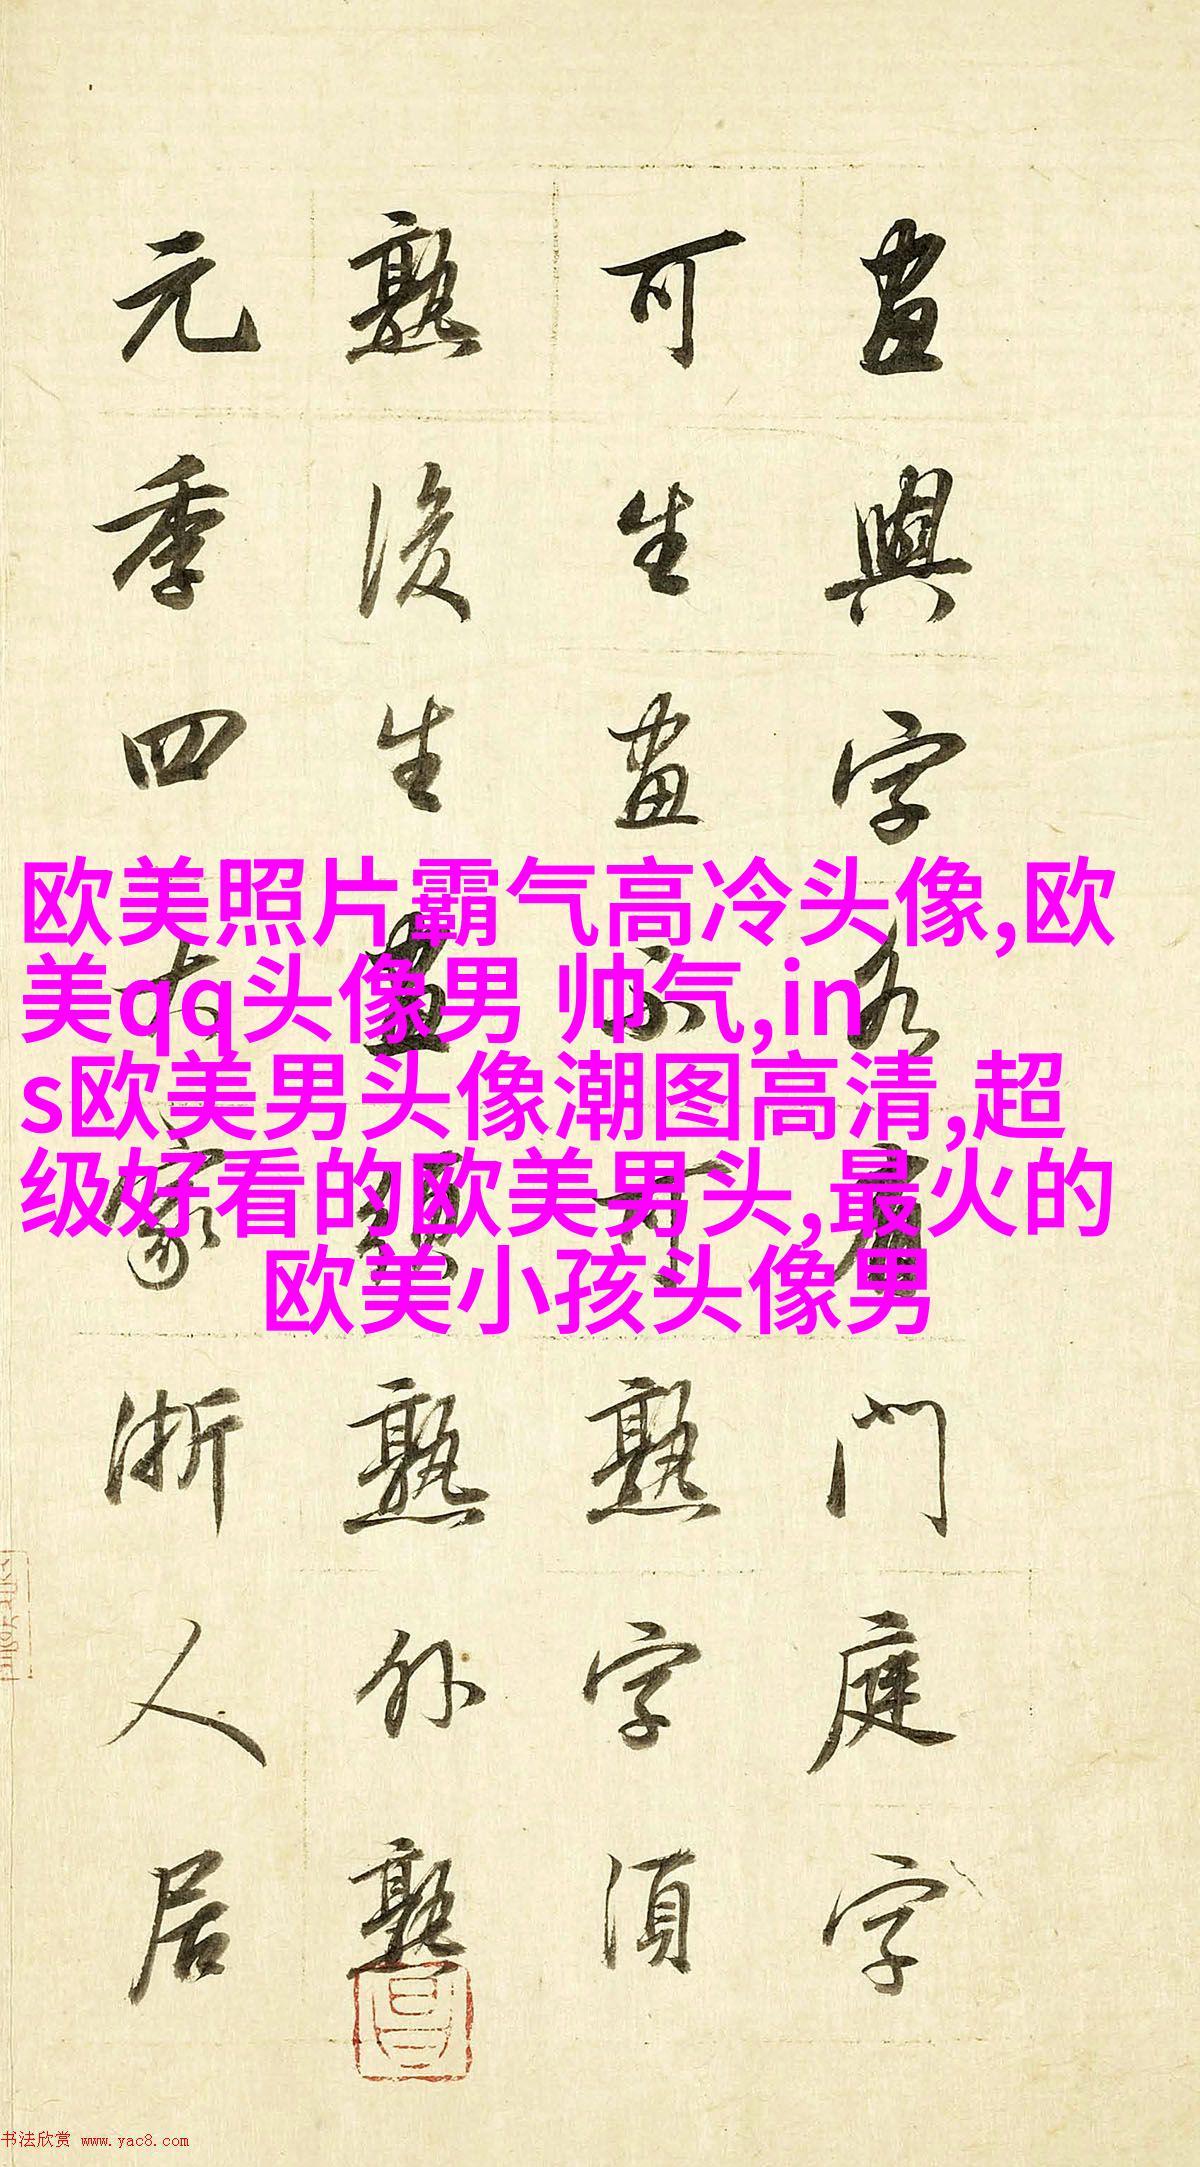 畫與字各有門庭字
可生畫不可熟字須
熟後生畫須熟外熟
元季四大家浙人居
欧美照片霸气高冷头像,欧
美qq头像男 帅气,in
s欧美男头像潮图高清,超
级好看的欧美男头,最火的
欧美小孩头像男
书法欣赏 www.yac8.com